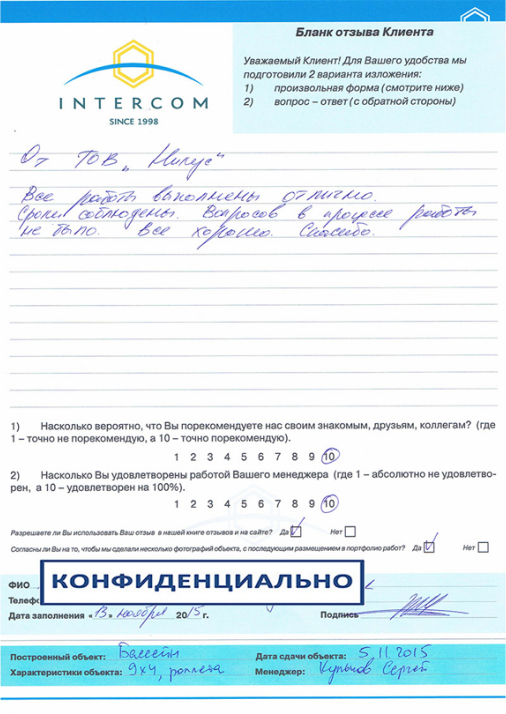 Бланк отзыва Клиента
Уважаемый Клиент! Для Вашего удобства мы
подготовили 2 варианта изложения:
1) произвольная форма (смотрите ниже)
2) вопрос – ответ (с обратной стороны)
INTERCOM
SINCE 1998
От ТОВ „Нилус“
Все работы выполнены отлично.
Сроки соблюдены. Вопросов в процессе работы
не было. Все хорошо. Спасибо.
1) Насколько вероятно, что Вы порекомендуете нас своим знакомым, друзьям, коллегам? (где
1 – точно не порекомендую, а 10 – точно порекомендую).
1 2 3 4 5 6 7 8 9 10
2) Насколько Вы удовлетворены работой Вашего менеджера (где 1 – абсолютно не удовлетво-
рен, а 10 – удовлетворен на 100%).
1 2 3 4 5 6 7 8 9 10
Разрешаете ли Вы использовать Ваш отзыв в нашей книге отзывов и на сайте? Да Нет
Согласны ли Вы на то, чтобы мы сделали несколько фотографий объекта, с последующим размещением в портфолио работ? Да Нет
ФИО
КОНФИДЕНЦИАЛЬНО
Телефо
Дата заполнения «13» ноября 2015 г. Подпись
Построенный объект: Бассейн Дата сдачи объекта: 5.11.2015
Характеристики объекта: 9х4, роллета Менеджер: Сергей